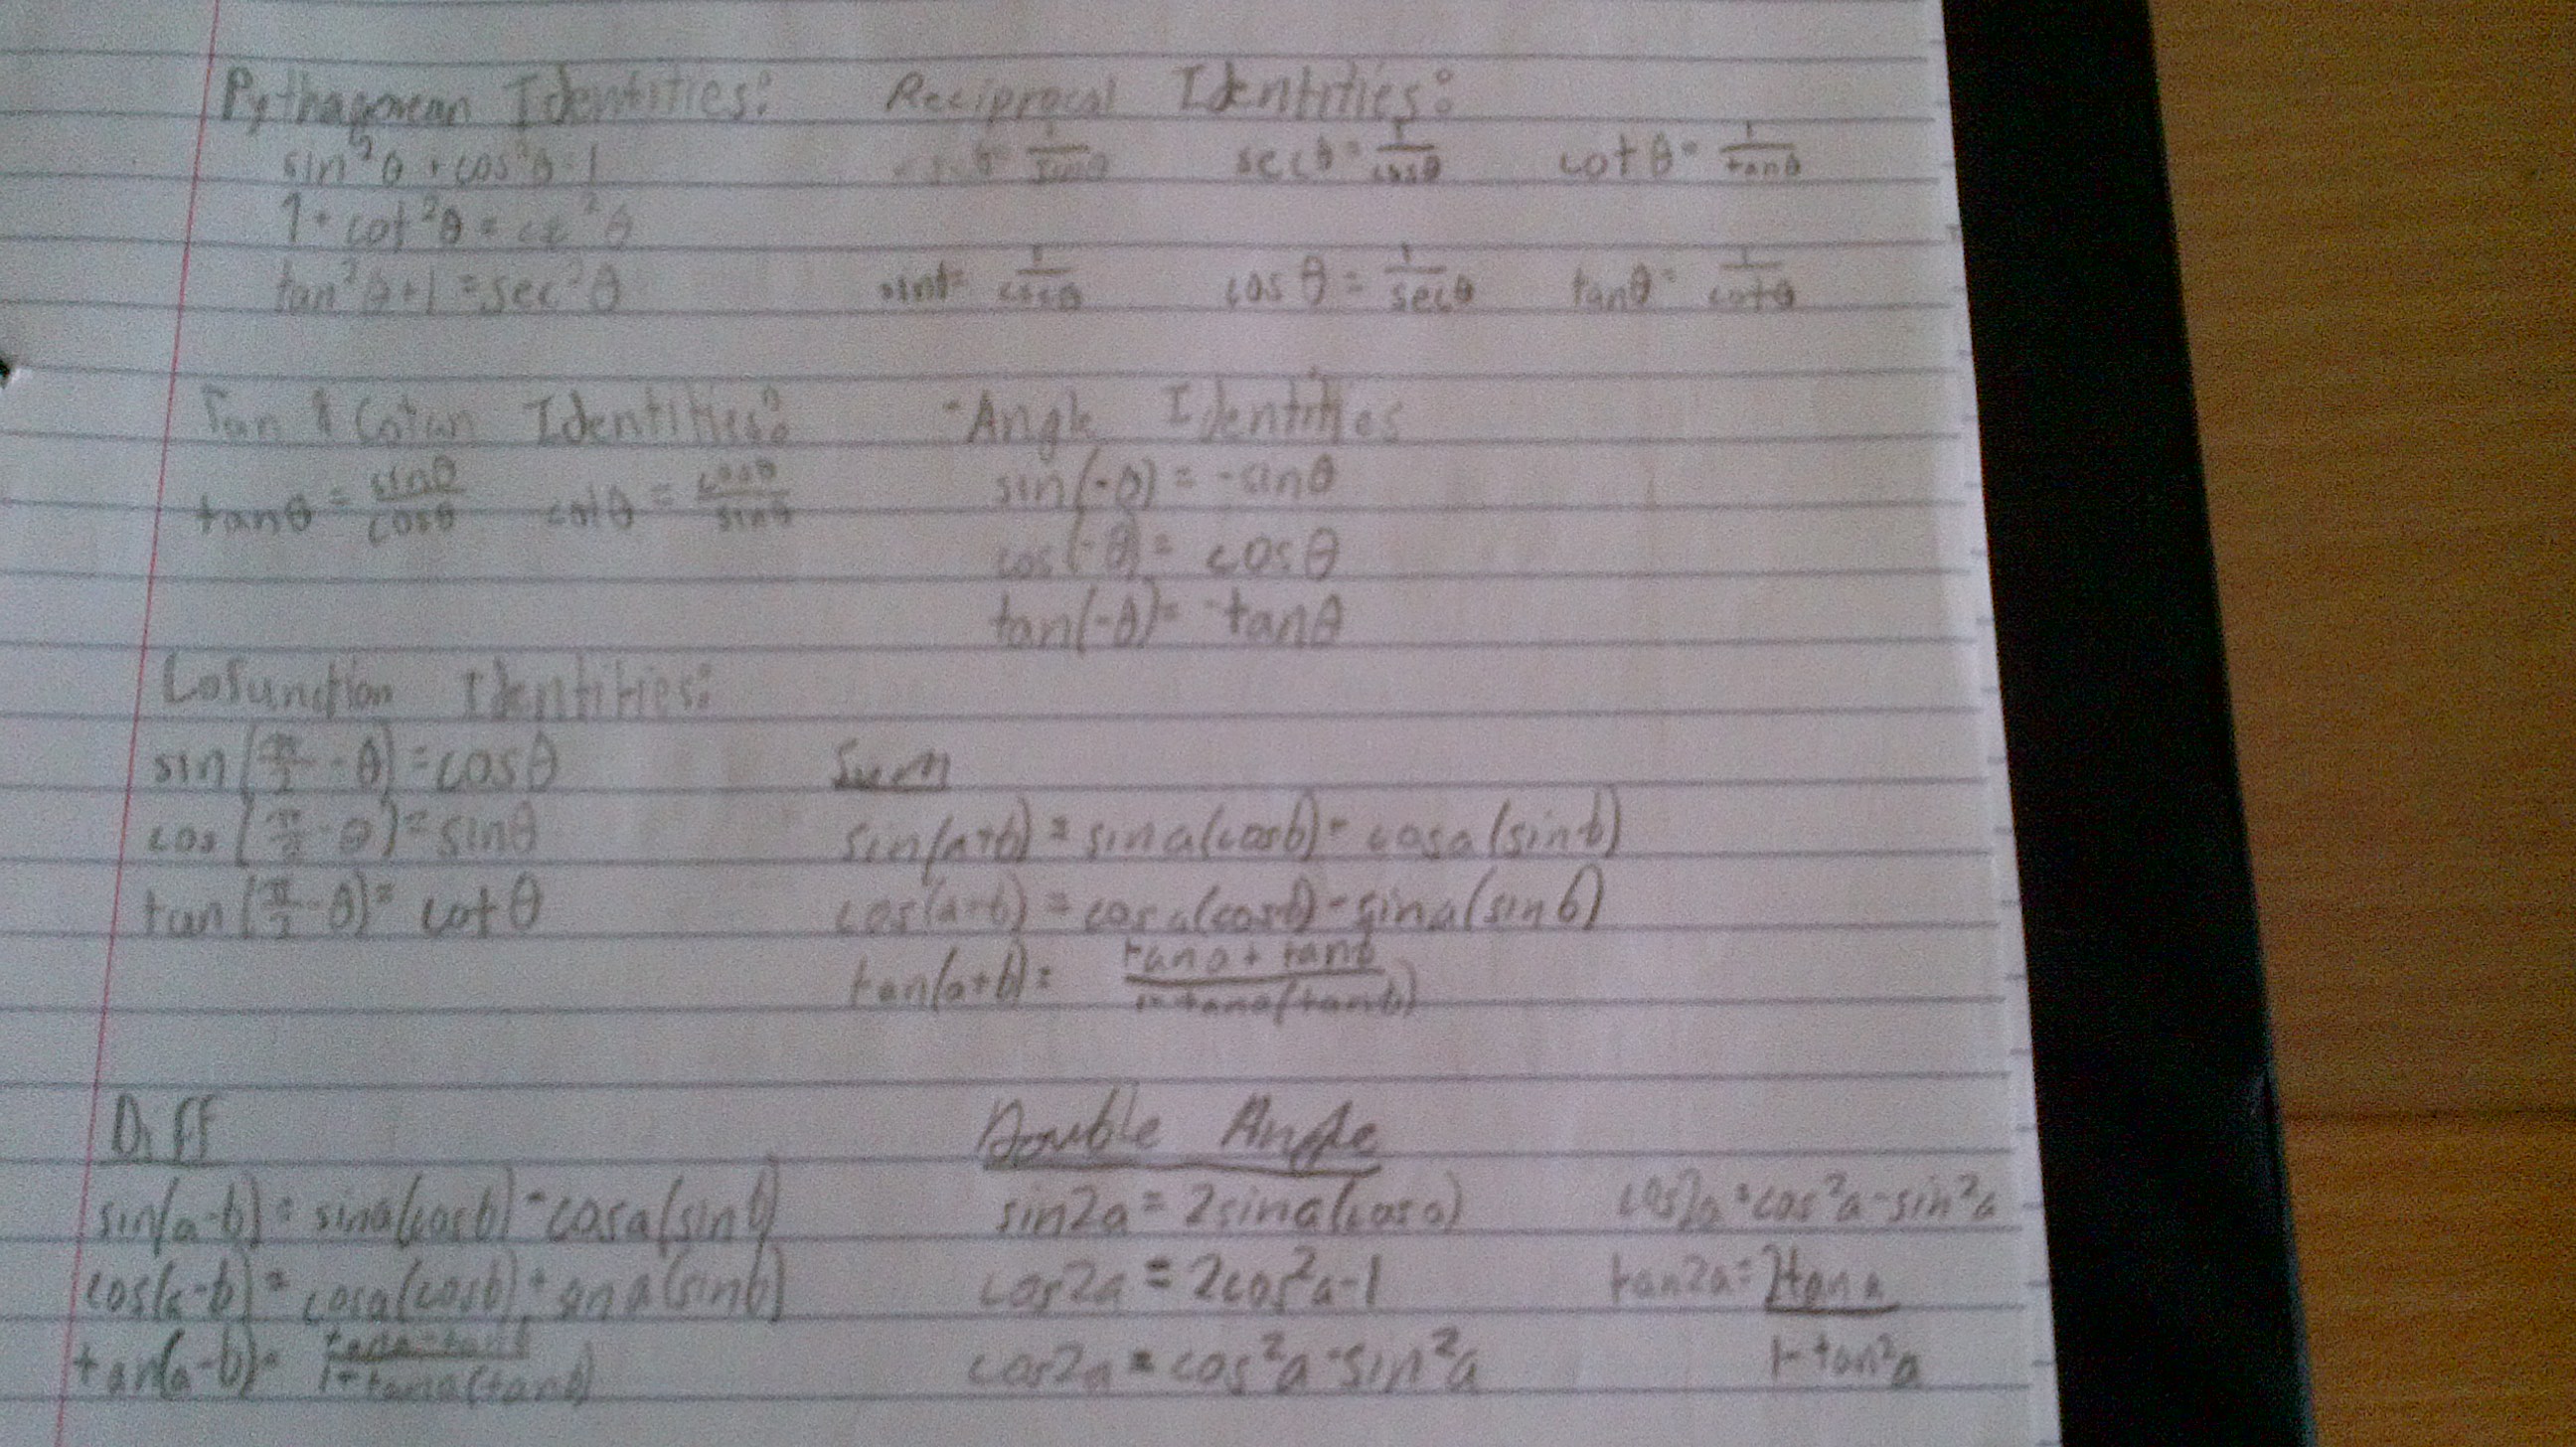 Pythagorean Identities:
sin²θ + cos²θ = 1
1 + cot²θ = csc²θ
tan²θ+1 = sec²θ
Reciprocal Identities:
secθ = 1/cosθ cotθ = 1/tanθ
sinθ = 1/cscθ cosθ = 1/secθ tanθ = 1/cotθ
Tan & Cotan Identities:
tanθ = sinθ/cosθ cotθ = cosθ/sinθ
-Angle Identities
sin(-θ) = -sinθ
cos(-θ) = cosθ
tan(-θ) = -tanθ
Cofunction Identities:
sin(π/2 - θ) = cosθ
cos(π/2 - θ) = sinθ
tan(π/2 - θ) = cotθ
Sum
sin(a+b) = sina(cosb) cosa(sinb)
cos(a+b) = cosa(cosb) - sina(sinb)
tan(a+b) = tana + tanb/1-tana(tanb)
Diff
sin(a-b) = sina(cosb) - cosa(sinb)
cos(a-b) = cosa(cosb) + sina(sinb)
tan(a-b) = tana-tanb/1+tana(tanb)
Double Angle
sin2a = 2sina(cosa) cos2a = cos²a - sin²a
cos2a = 2cos²a-1 tan2a = 2tana/1-tan²a
cos2a = cos²a - sin²a